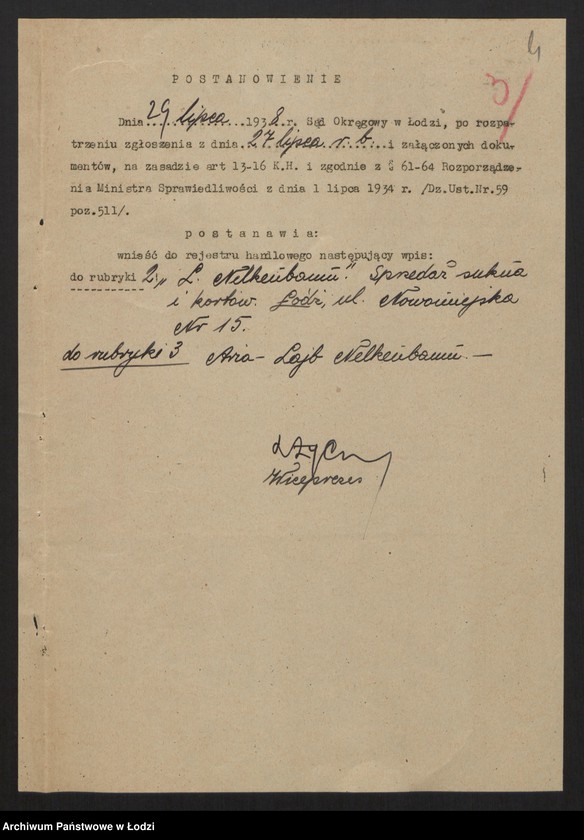 4
3/
POSTANOWIENIE
Dnia 29 lipca 1938 r. Sąd Okręgowy w Łodzi, po rozpa-
trzeniu zgłoszenia z dnia 27 lipca r. b. i załączonych doku-
mentów, na zasadzie art 13-16 K.H. i zgodnie z § 61-64 Rozporządze-
nia Ministra Sprawiedliwości z dnia 1 lipca 1934 r. /Dz.Ust.Nr.59
poz.511/.
postanawia:
wnieść do rejestru handlowego następujący wpis:
do rubryki 2. "L. Nelkenbaum". Sprzedaż sukna
i kortów. Łódź, ul. Nowomiejska
Nr 15.
do rubryki 3 Aria-Lajb Nelkenbaum.—
Wiceprezes
Archiwum Państwowe w Łodzi